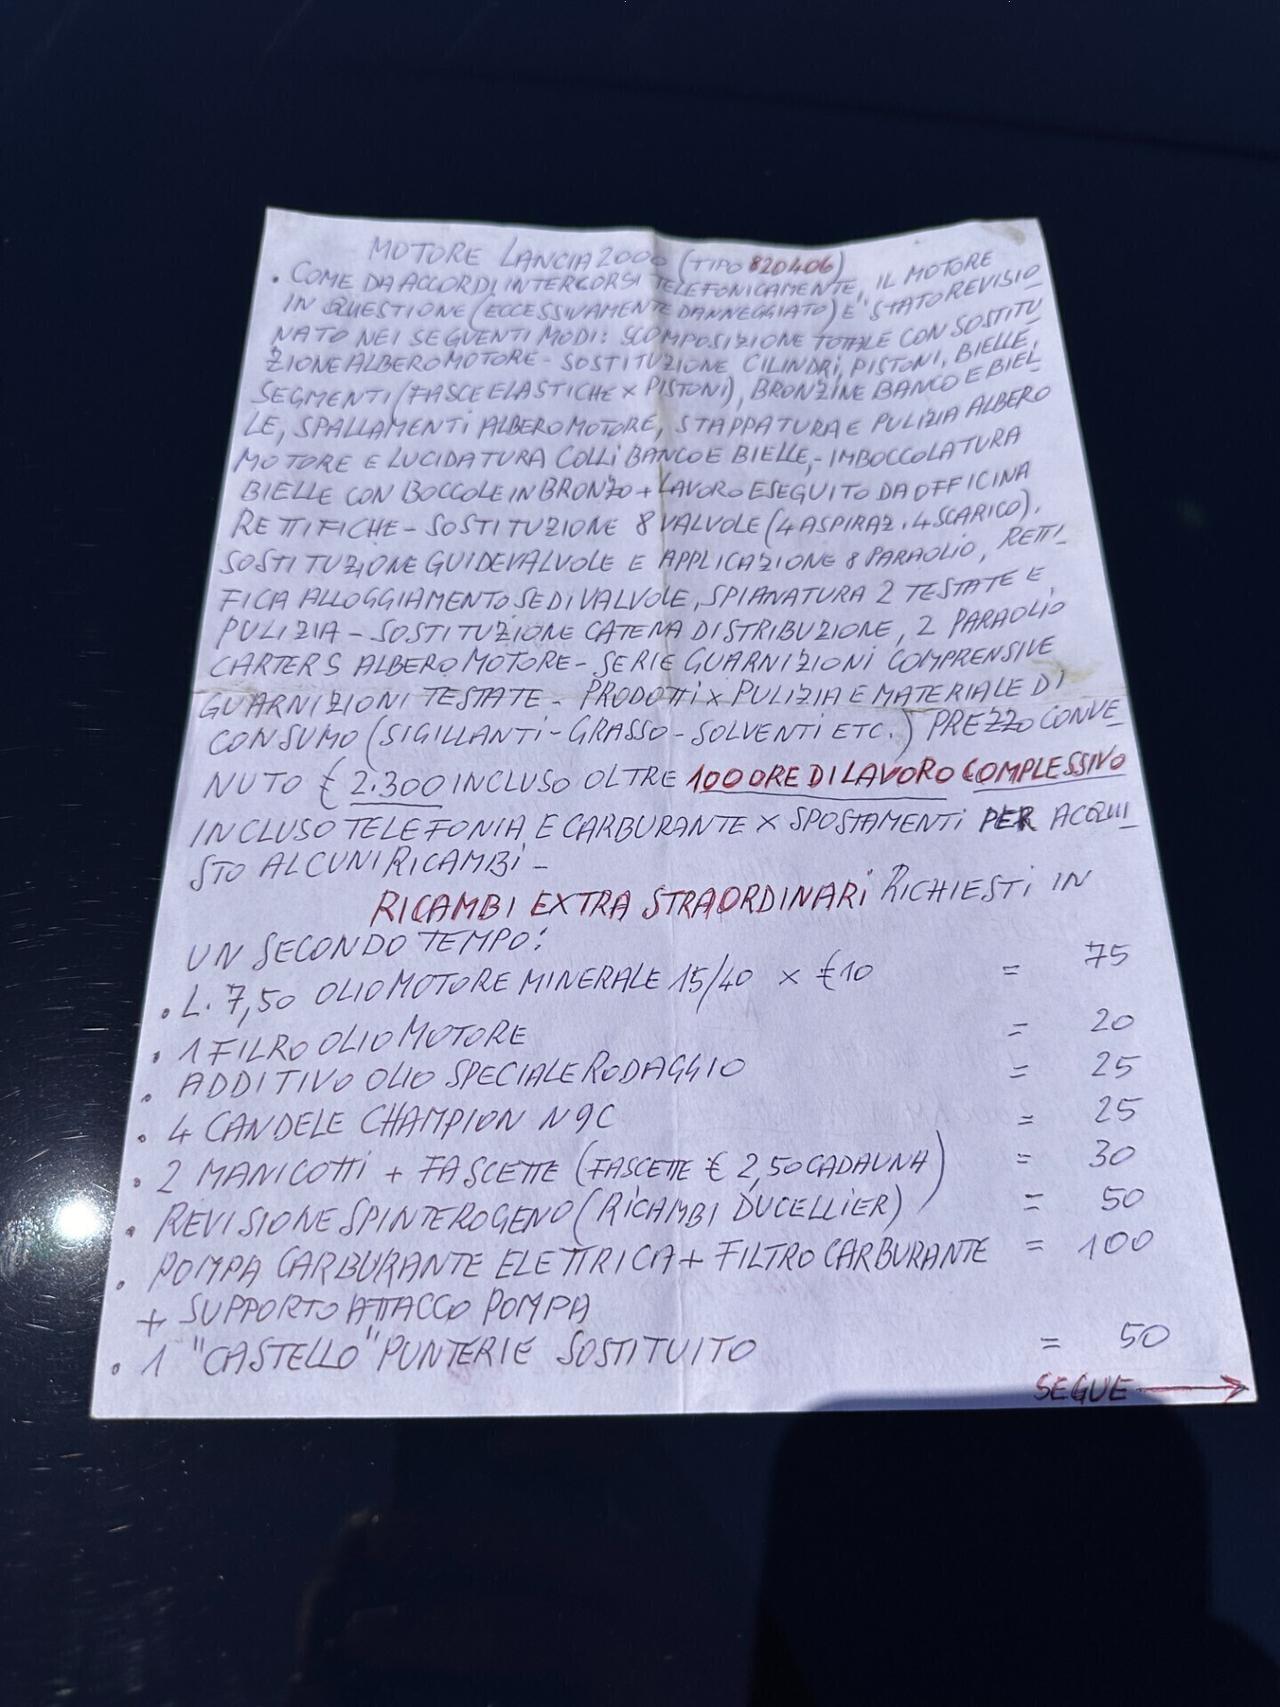 MOTORE LANCIA 2000 (TIPO 820406)
• COME DA ACCORDI INTERCORSI TELEFONICAMENTE, IL MOTORE
IN QUESTIONE (ECCESSIVAMENTE DANNEGGIATO) E' STATO REVISIO
NATO NEI SEGUENTI MODI: SCOMPOSIZIONE TOTALE CON SOSTITU
ZIONE ALBERO MOTORE - SOSTITUZIONE CILINDRI, PISTONI, BIELLE,
SEGMENTI (FASCE ELASTICHE X PISTONI), BRONZINE BANCO E BIEL
LE, SPALLAMENTI ALBERO MOTORE, STAPPATURA E PULIZIA ALBERO
MOTORE E LUCIDATURA COLLI BANCO E BIELLE, - IMBOCCOLATURA
BIELLE CON BOCCOLE IN BRONZO + LAVORO ESEGUITO DA OFFICINA
RETTIFICHE - SOSTITUZIONE 8 VALVOLE (4 ASPIRAZ. 4 SCARICO),
SOSTITUZIONE GUIDEVALVOLE E APPLICAZIONE 8 PARAOLIO, RETTI-
FICA ALLOGGIAMENTO SEDI VALVOLE, SPIANATURA 2 TESTATE E
PULIZIA - SOSTITUZIONE CATENA DISTRIBUZIONE, 2 PARAOLIO
CARTERS ALBERO MOTORE - SERIE GUARNIZIONI COMPRENSIVE
GUARNIZIONI TESTATE - PRODOTTI X PULIZIA E MATERIALE DI
CONSUMO (SIGILLANTI - GRASSO - SOLVENTI ETC.) PREZZO CONVE_
NUTO € 2.300 INCLUSO OLTRE 100 ORE DI LAVORO COMPLESSIVO
INCLUSO TELEFONIA E CARBURANTE X SPOSTAMENTI PER ACQUI_
STO ALCUNI RICAMBI -
RICAMBI EXTRA STRAORDINARI RICHIESTI IN
UN SECONDO TEMPO:
• L. 7,50 OLIO MOTORE MINERALE 15/40 X € 10 = 75
• 1 FILRO OLIO MOTORE = 20
• ADDITIVO OLIO SPECIALE RODAGGIO = 25
• 4 CANDELE CHAMPION N9C = 25
• 2 MANICOTTI + FASCETTE (FASCETTE € 2,50 CADAUNA) = 30
• REVISIONE SPINTEROGENO (RICAMBI DUCELLIER) = 50
• POMPA CARBURANTE ELETTRICA + FILTRO CARBURANTE = 100
+ SUPPORTO ATTACCO POMPA
• 1 "CASTELLO" PUNTERIE SOSTITUITO = 50
SEGUE →